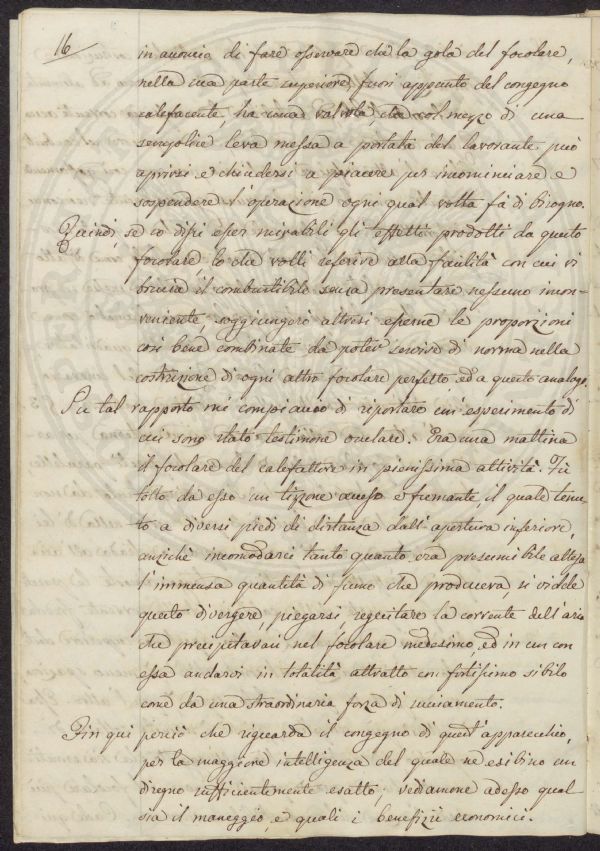 16
in acconcio di fare osservare che la gola del focolare,
nella sua parte superiore, fuori appunto del congegno
calefacente, ha una valvola, che col mezzo di una
semplice leva messa a portata del lavorante può
aprirsi e chiudersi a piacere per incominciare e
sospendere l'operazione ogni qual volta fà di bisogno.
Quindi, se io dissi esser mirabili gli effetti prodotti da questo
focolare lo che volli referire alla facilità con cui vi
brucia il combustibile senza presentare nessuno incon-
veniente, soggiungerò altresi esserne le proporzioni
così bene combinate da poter servire di norma nella
costruzione di ogni altro focolare perfetto, ed a questo analogo.
Su tal rapporto mi compiaccio di riportare un'esperimento di
cui sono stato testimone oculare. Era una mattina
il focolare del calefattore in pienissima attività. Fù
tolto da esso un tizzone acceso e fumante, il quale tenu
to a diversi piedi di distanza dall'apertura inferiore,
anzichè incomodarci tanto quanto era presumibile attesa
l'immensa quantità di fumo che produceva, si vidde
questo divergere piegarsi, seguitare la corrente dell'aria
che precipitavasi nel focolare medesimo, ed in un con
essa andarsi in totalità attratto con fortissimo sibilo
come da una straordinaria forza di succiamento.
Fin qui perciò che riguarda il congegno di quest'apparecchio,
per la maggiore intelligenza del quale ne esibisco un
disegno sufficientemente esatto; vediamone adesso qual
sia il maneggio, e quali i benefizii economici.